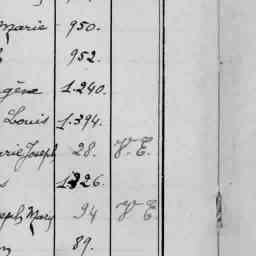 Marie 950.
952.
gène 1.240.
Louis 1.394.
arie Joseph 28. V. E.
s 1326.
seph Mary 94 V E.
n 89.